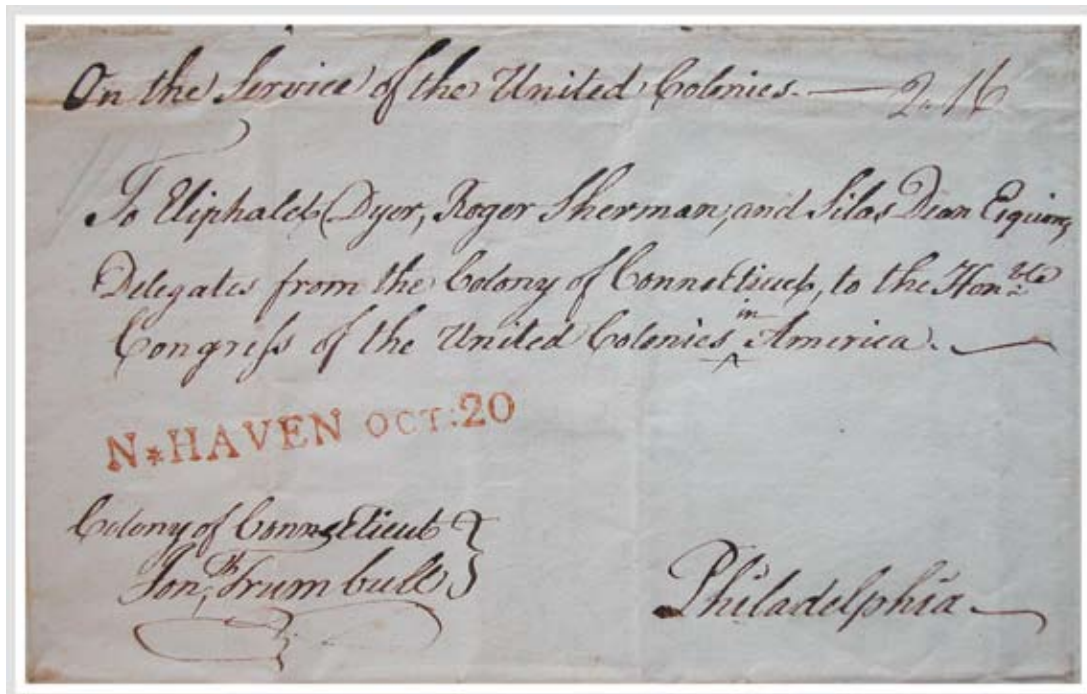 On the Service of the United Colonies. — 2.16
To Eliphalet Dyer, Roger Sherman, and Silas Dean Esquires,
Delegates from the Colony of Connecticut, to the Honble
Congress of the United Colonies in America. —
N*HAVEN OCT:20
Colony of Connecticut }
Jonth Trumbull }
Philadelphia —